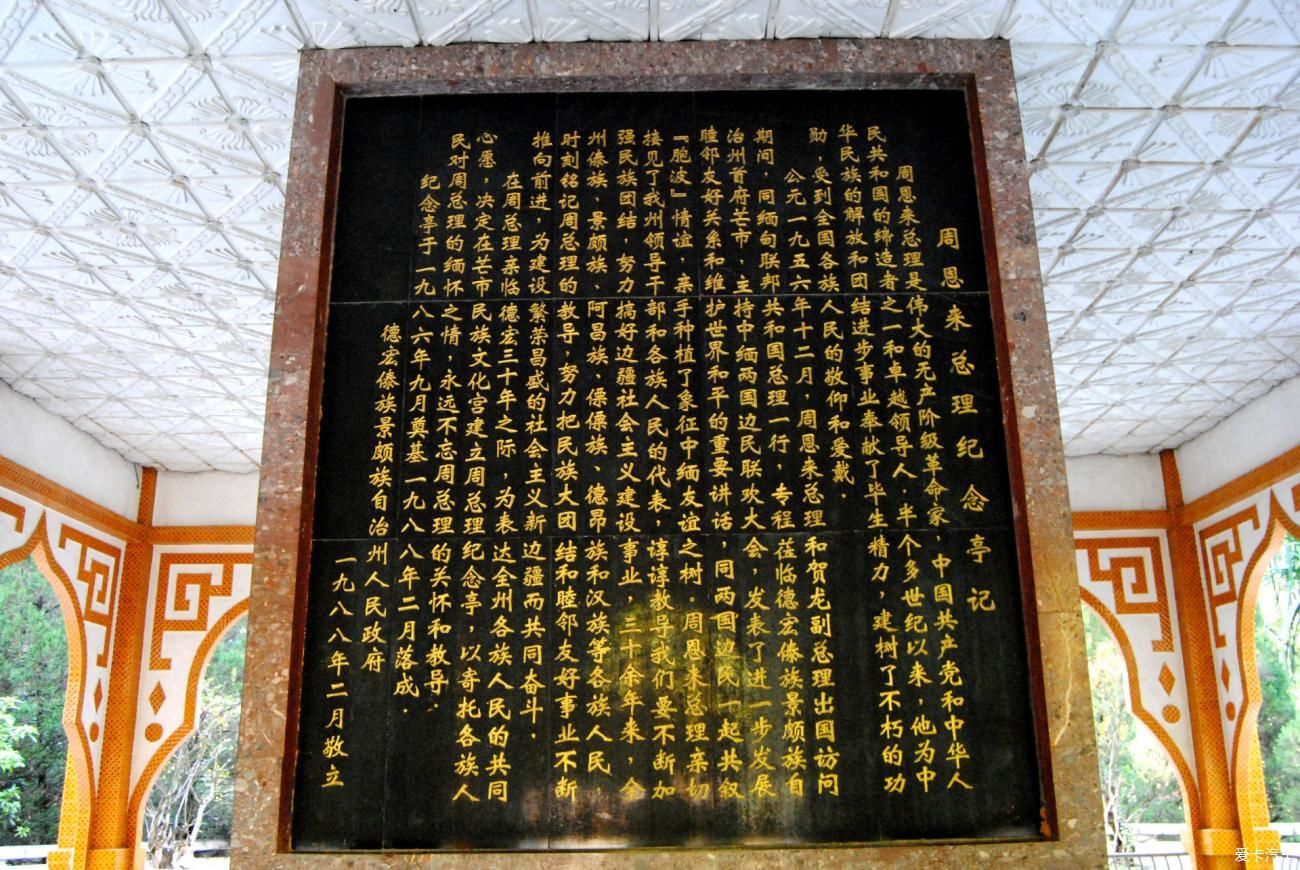 周恩来总理纪念亭记
周恩来总理是伟大的无产阶级革命家，中国共产党和中华人
民共和国的缔造者之一和卓越领导人．半个多世纪以来，他为中
华民族的解放和团结进步事业奉献了毕生精力，建树了不朽的功
勋，受到全国各族人民的敬仰和爱戴．
公元一九五六年十二月，周恩来总理和贺龙副总理出国访问
期间，同缅甸联邦共和国总理一行，专程莅临德宏傣族景颇族自
治州首府芒市，主持中缅两国边民联欢大会，发表了进一步发展
睦邻友好关系和维护世界和平的重要讲话，同两国边民一起共叙
『胞波』情谊．亲手种植了象征中缅友谊之树．周恩来总理亲切
接见了我州领导干部和各族人民的代表，谆谆教导我们要不断加
强民族团结，努力搞好边疆社会主义建设事业，三十余年来，全
州傣族、景颇族、阿昌族、傈僳族、德昂族和汉族等各族人民，
时刻铭记周总理的教导，努力把民族大团结和睦邻友好事业不断
推向前进，为建设繁荣昌盛的社会主义新边疆而共同奋斗．
在周总理亲临德宏三十年之际，为表达全州各族人民的共同
心愿，决定在芒市民族文化宫建立周总理纪念亭，以寄托各族人
民对周总理的缅怀之情，永远不忘周总理的关怀和教导．
纪念亭于一九八六年九月奠基一九八八年二月落成．
德宏傣族景颇族自治州人民政府
一九八八年二月敬立